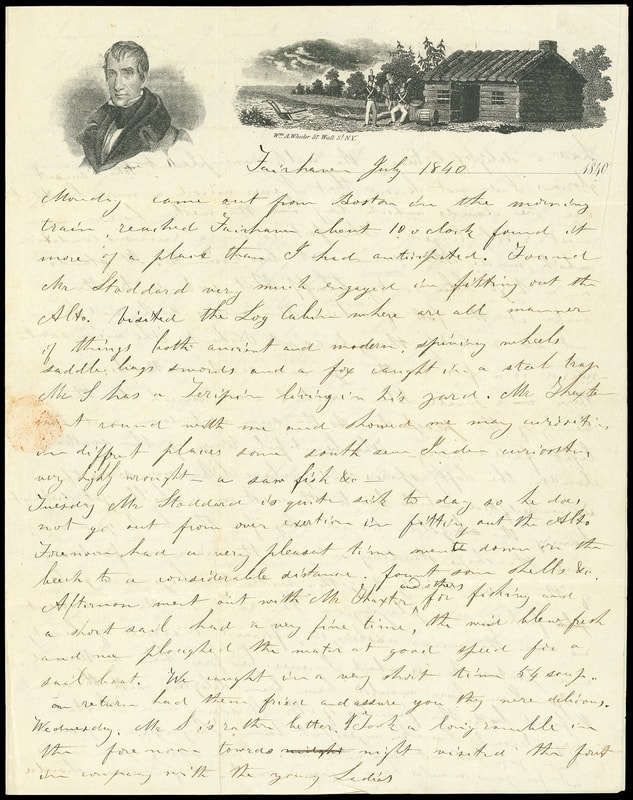 Wm. A. Wheeler 37 Wall St. N.Y.
Fairhaven July 1840
1840
Monday came out from Boston in the morning
train, reached Fairhaven about 10 o clock found it
more of a place than I had anticipated. Found
Mr Stoddard very much engaged in fitting out the
Alto. Visited the Log Cabin where are all manner
of things both ancient and modern, spining wheels
saddle bags swords and a fox caught in a steel trap
Mr S has a Teripin living in his yard. Mr Thaxter
went round with me and showed me many curiosities
in diffrent places some south sea Indian curiosities
very highly wrought a saw fish &c
Tuesday Mr Stoddard is quite sick to day so he does
not go out from over exertion in fitting out the Alto
Forenoon had a very pleasant time went down on the
beach to a considerable distance. fount some shells &c.
Afternoon went out with Mr Thaxter and others for fishing and
a short sail had a very fine time, the wind blew fresh
and we ploughed the water at good speed for a
sail boat. We caught in a very short time 54 scup..
on return had them fried and assure you they were delicious.
Wednesday. Mr S is rather better, I Took a long ramble in
the forenoon towards night visited the fort
in company with the young Ladies